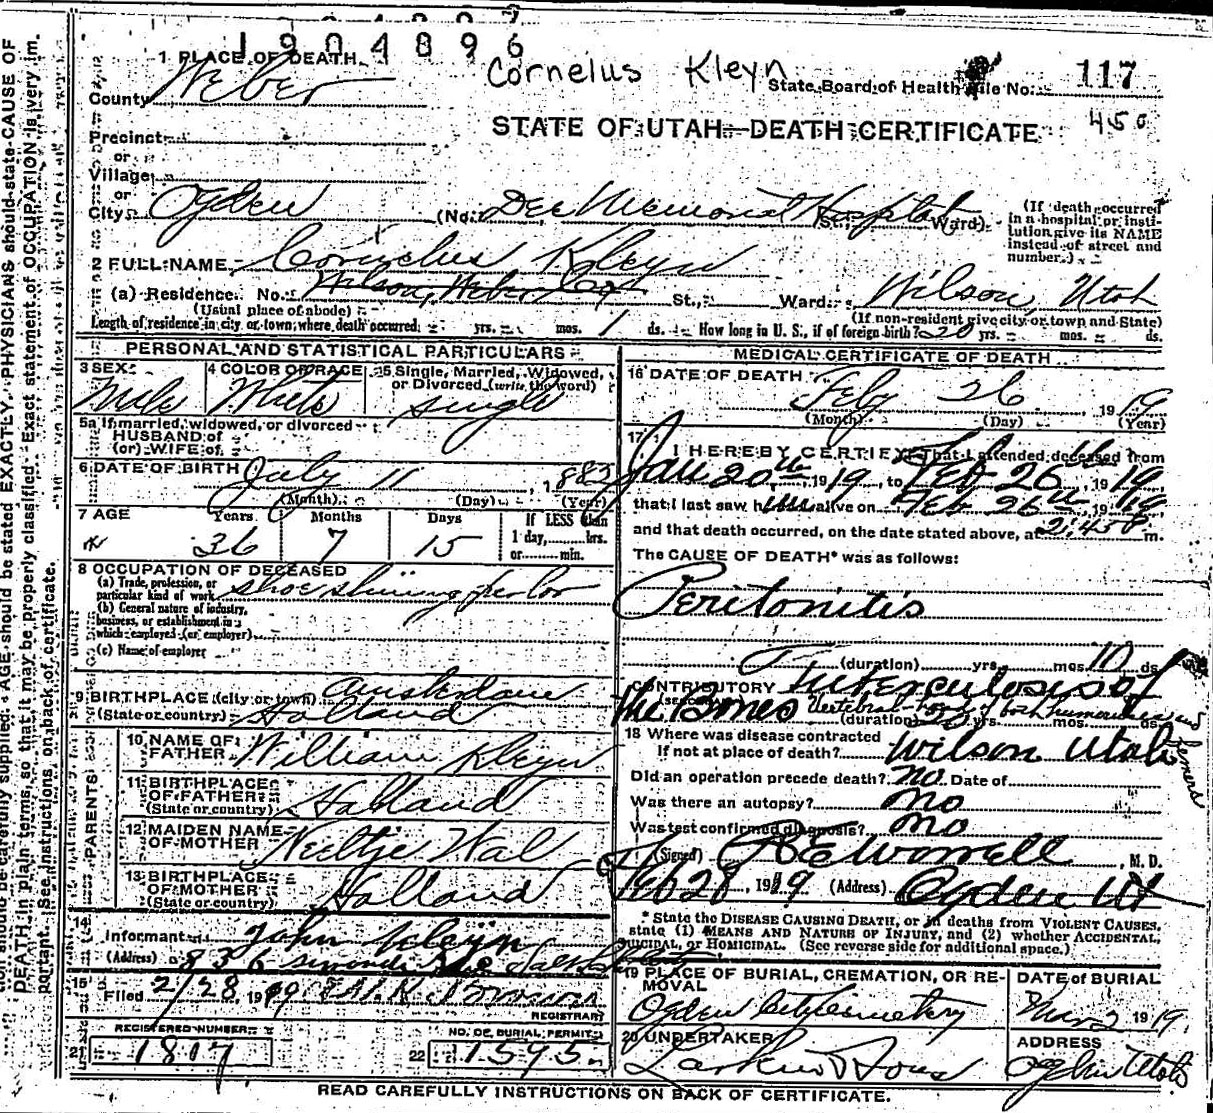 1904896
Cornelius Kleyn
State Board of Health File No. 117
450
STATE OF UTAH—DEATH CERTIFICATE
1 PLACE OF DEATH
County Weber
Precinct
or
Village
or
City Ogden (No. Dee Memorial Hospital St., Ward)
(If death occurred in a hospital or institution give its NAME instead of street and number.)
2 FULL NAME Cornelius Kleyn
(a) Residence. No. Wilson, Weber Co St., Ward. Wilson, Utah
(Usual place of abode) (If non-resident give city or town and State)
Length of residence in city or town where death occurred yrs. mos. 1 ds. How long in U. S., if of foreign birth? 20 yrs. mos. ds.
PERSONAL AND STATISTICAL PARTICULARS
3 SEX Male
4 COLOR OR RACE White
5 Single, Married, Widowed, or Divorced (write the word) single
5a If married, widowed, or divorced
HUSBAND of
(or) WIFE of
6 DATE OF BIRTH July 11, 1882
(Month) (Day) (Year)
7 AGE Years 36 Months 7 Days 15 If LESS than 1 day, hrs. or min.
8 OCCUPATION OF DECEASED
(a) Trade, profession, or particular kind of work shoe shining parlor
(b) General nature of industry, business, or establishment in which employed (or employer)
(c) Name of employer
9 BIRTHPLACE (city or town) Amsterdam
(State or country) Holland
PARENTS
10 NAME OF FATHER William Kleyn
11 BIRTHPLACE OF FATHER (State or country) Holland
12 MAIDEN NAME OF MOTHER Neeltje Wal
13 BIRTHPLACE OF MOTHER (State or country) Holland
14
Informant John Kleijn
(Address) 836
15
Filed 2/28 1919
REGISTRAR
REGISTERED NUMBER
21 1817
NO. OF BURIAL PERMIT
22 1595
MEDICAL CERTIFICATE OF DEATH
16 DATE OF DEATH Feby 26, 1919
(Month) (Day) (Year)
17
I HEREBY CERTIFY, That I attended deceased from
Jan 20th, 1919, to Feb 26th, 1919,
that I last saw him alive on Feb 26th, 1919
and that death occurred, on the date stated above, at 2:45 P m.
The CAUSE OF DEATH* was as follows:
Peritonitis
(duration) yrs. mos. 10 ds.
CONTRIBUTORY Tuberculosis of
the Bones Vertebral body of both humerus and femurs
(duration) yrs. mos. ds.
18 Where was disease contracted
If not at place of death? Wilson Utah
Did an operation precede death? no Date of
Was there an autopsy? no
Was test confirmed diagnosis? no
(Signed) R E Worrell, M. D.
Feb 28, 1919 (Address) Ogden Ut
* State the DISEASE CAUSING DEATH, or in deaths from VIOLENT CAUSES,
state (1) MEANS AND NATURE OF INJURY, and (2) whether ACCIDENTAL,
SUICIDAL, or HOMICIDAL. (See reverse side for additional space.)
19 PLACE OF BURIAL, CREMATION, OR REMOVAL Ogden City Cemetery
DATE of BURIAL Mar 2 1919
20 UNDERTAKER Larkin & Sons
ADDRESS Ogden Utah
READ CAREFULLY INSTRUCTIONS ON BACK OF CERTIFICATE.
tion should be carefully supplied. AGE should be stated EXACTLY. PHYSICIANS should state CAUSE OF
DEATH in plain terms, so that it may be properly classified. Exact statement of OCCUPATION is very im-
portant. See instructions on back of certificate.